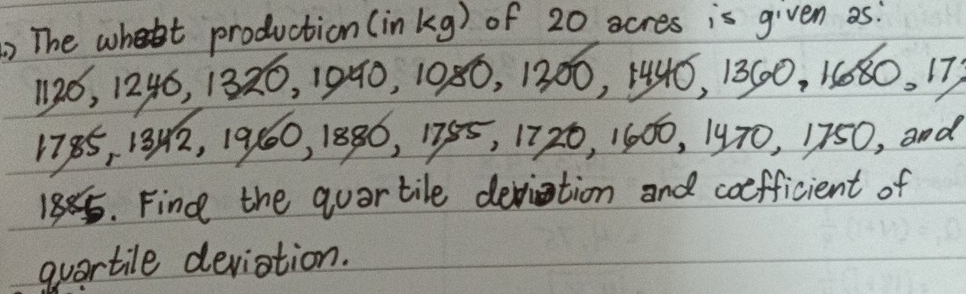 .) The wheat production (in kg) of 20 acres is given as:
1120, 1240, 1320, 1040, 1080, 1200, 1440, 1360, 1680, 17
1785, 1342, 1960, 1880, 1755, 1720, 1600, 1470, 1750, and
1885. Find the quartile deviation and coefficient of
quartile deviation.